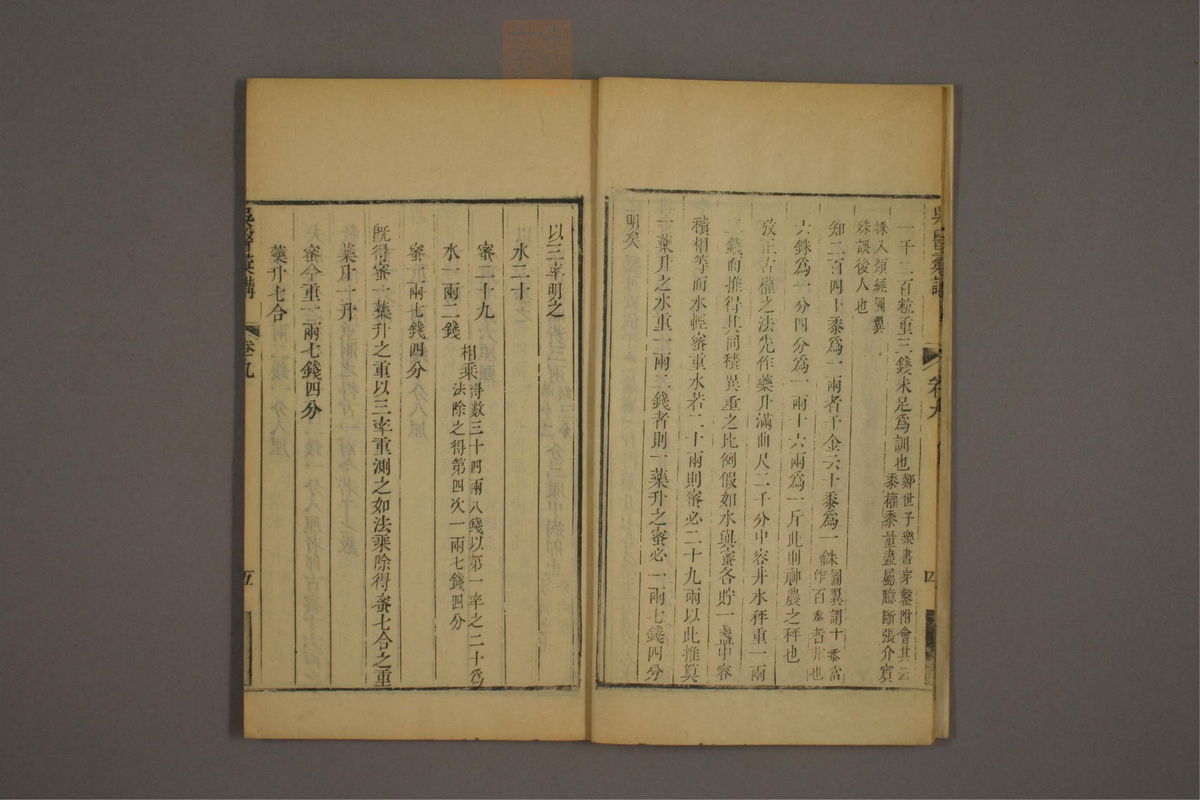 吳醫彙講 卷九 四
一千二百粒重三錢未足爲訓也鄭世子樂書穿鑿附會其云
黍權黍量盡屬臆斷張介賓
採入類經圖翼
殊誤後人也
知二百四十黍爲一兩者千金云十黍爲一銖圖翼謂十黍當
作百黍者非也
六銖爲一分四分爲一兩十六兩爲一斤此則神農之秤也
攷正古權之法先作藥升滿曲尺二千分中容井水秤重一兩
二錢而推得其同積異重之比例假如水與蜜各貯一盞中容
積相等而水輕蜜重水若二十兩則蜜必二十九兩以此推算
一藥升之水重一兩二錢者則一藥升之蜜必一兩七錢四分
明矣
以三率明之
水二十
蜜二十九
水一兩二錢
相乘得數三十四兩八錢以第一率之二十爲
法除之得第四次一兩七錢四分
蜜一兩七錢四分
既得蜜一藥升之重以三率重測之如法乘除得蜜七合之重
藥升一升
蜜今重一兩七錢四分
藥升七合
吳醫彙講 卷九 五